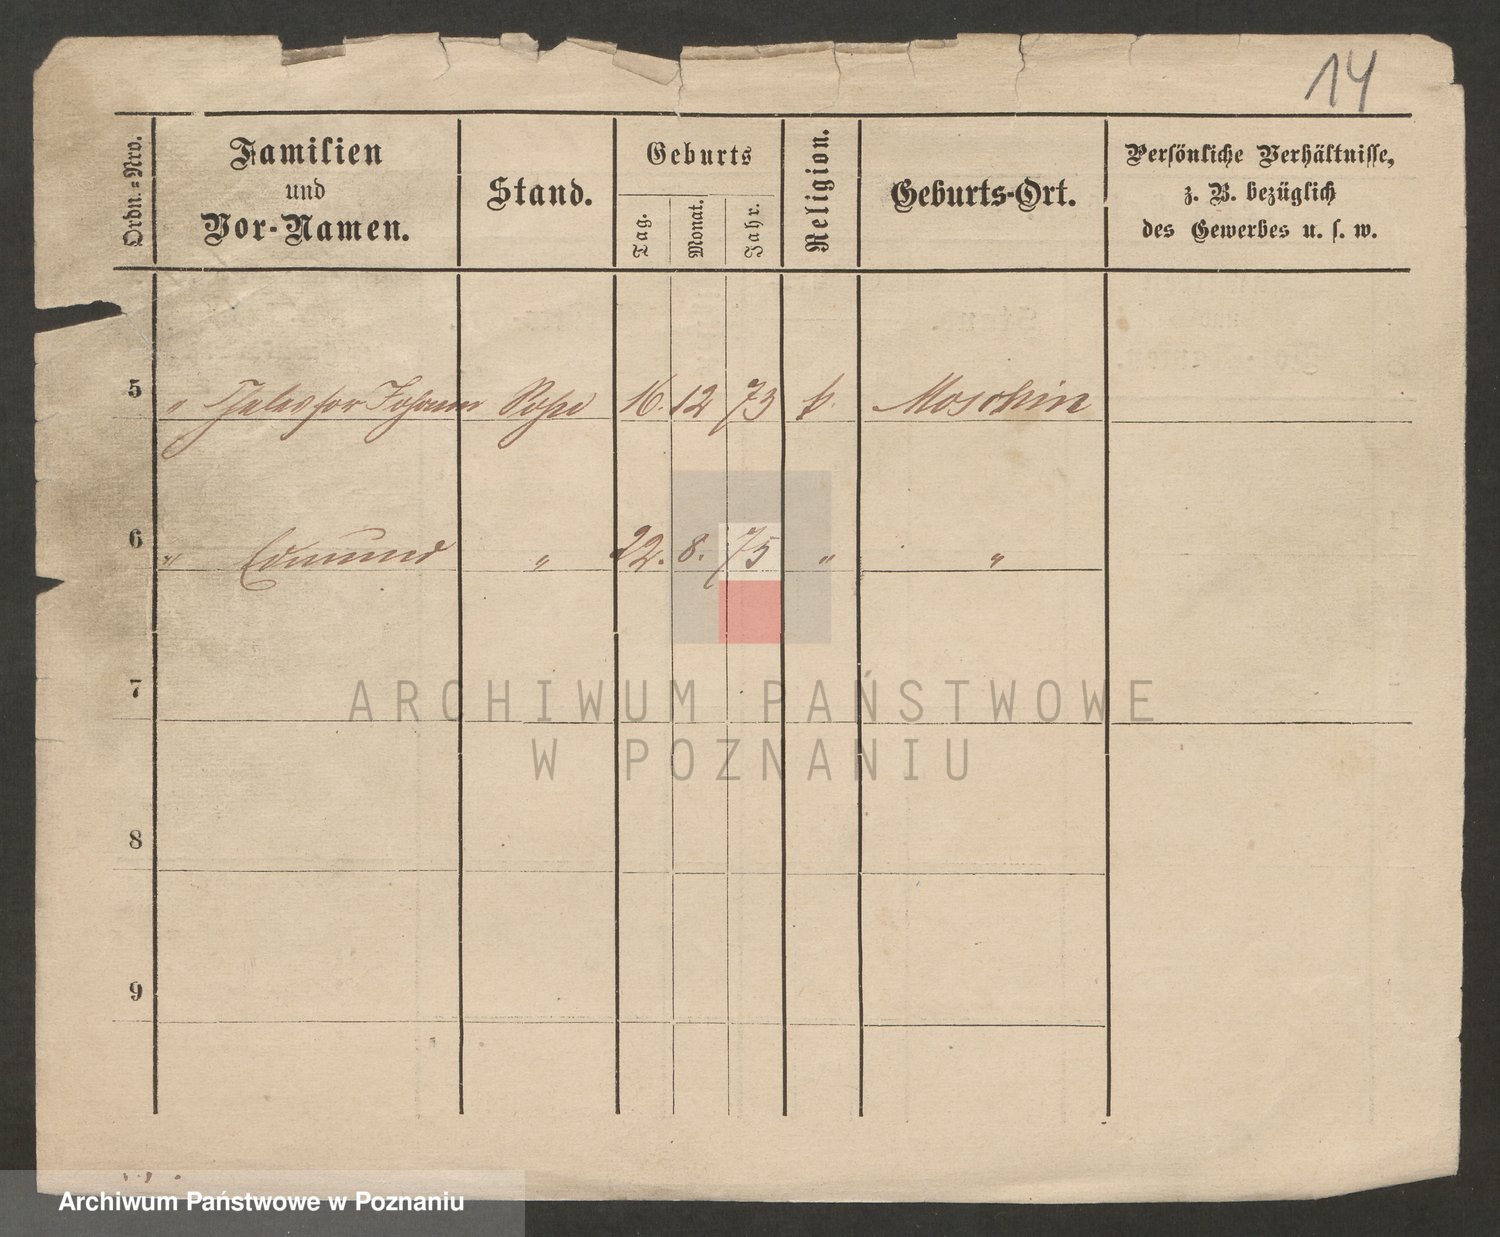 14
Ordn.=Nro.
Familien
und
Vor-Namen.
Stand.
Geburts
Tag.
Monat.
Jahr.
Religion.
Geburts-Ort.
Persönliche Verhältnisse,
z. B. bezüglich
des Gewerbes u. s. w.
5 " Johann 16. 12 73 k. Moschin
6 " Edmund " 22. 8. 75 " "
7
8
9
ARCHIWUM PAŃSTWOWE
W POZNANIU
Archiwum Państwowe w Poznaniu